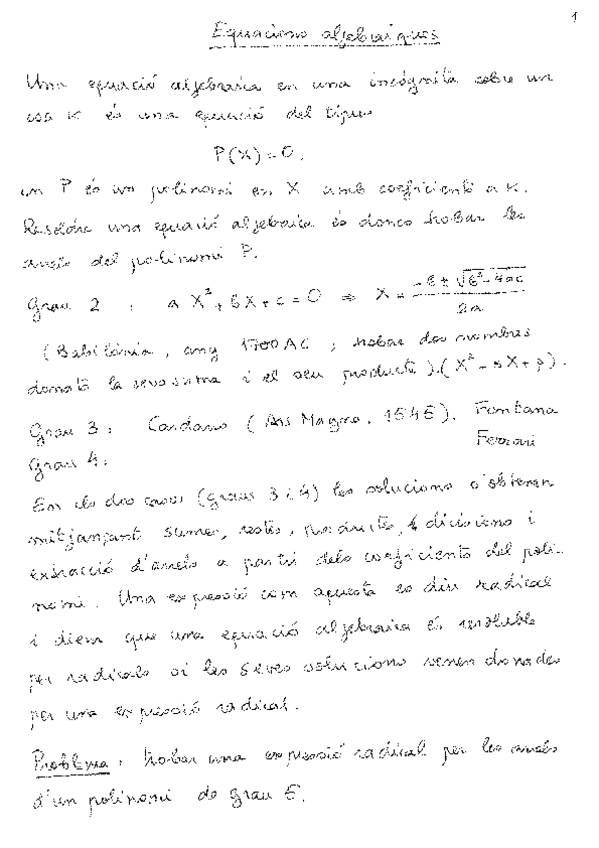 1
Equacions algebraiques
Una equació algebraica en una incògnita sobre un
cos K és una equació del tipus
P(X) = 0,
on P és un polinomi en X amb coeficients a K.
Resoldre una equació algebraica és doncs trobar les
arrels del polinomi P.
Grau 2 : a X² + b X + c = 0 ⇒ X = (-b ± √(b² - 4ac)) / 2a
(Babilònia, any 1700 AC ; trobar dos nombres
donats la seva suma i el seu producte).(X² - sX + p).
Grau 3 : Cardano (Ars Magna, 1545). Fontana
Grau 4 : Ferrari
En els dos casos (graus 3 i 4) les solucions s'obtenen
mitjançant sumes, restes, productes, divisions i
extracció d'arrels a partir dels coeficients del poli-
nomi. Una expressió com aquesta es diu radical
i diem que una equació algebraica és resoluble
per radicals si les seves solucions venen donades
per una expressió radical.
Problema : trobar una expressió radical per les arrels
d'un polinomi de grau 5.